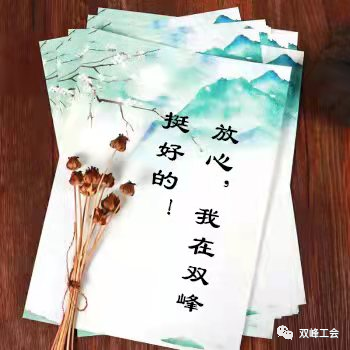 放心，我在双峰
挺好的！
双峰工会